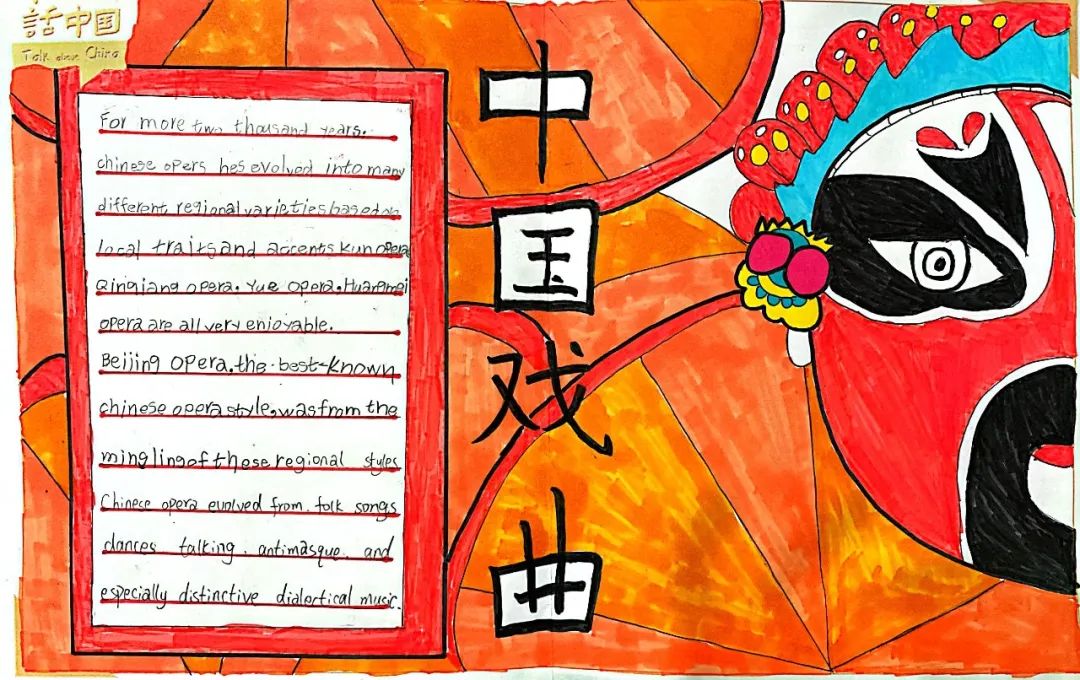 話中国
Talk about China
For more two thousand years.
chinese opers hes evolved into many
different regional varieties based on
local traits and accents Kun opera
Qinqiang opera. Yue opera. Huangmei
opera are all very enjoyable.
Beijing opera. the best-known
chinese opera style, was from the
mingling of these regional styles
Chinese opera evolved from folk songs
dances talking. antimasque. and
especially distinctive dialectical music.
中
国
戏
曲